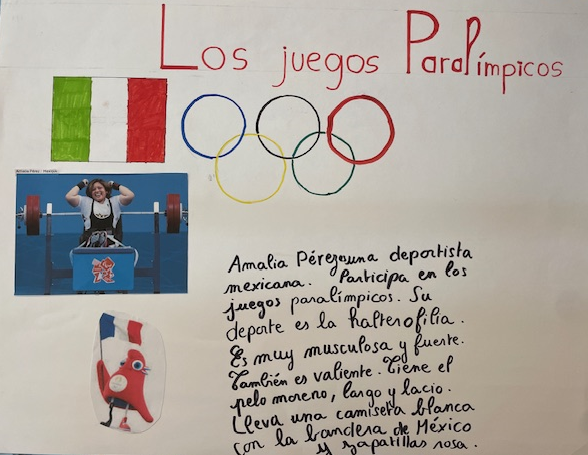 Los juegos Paralímpicos
Amalia Pérez una deportista
mexicana. Participa en los
juegos paralímpicos. Su
deporte es la halterofilia.
Es muy musculosa y fuerte.
También es valiente. Tiene el
pelo moreno, largo y lacio.
Lleva una camiseta blanca
con la bandera de México
y zapatillas rosa.